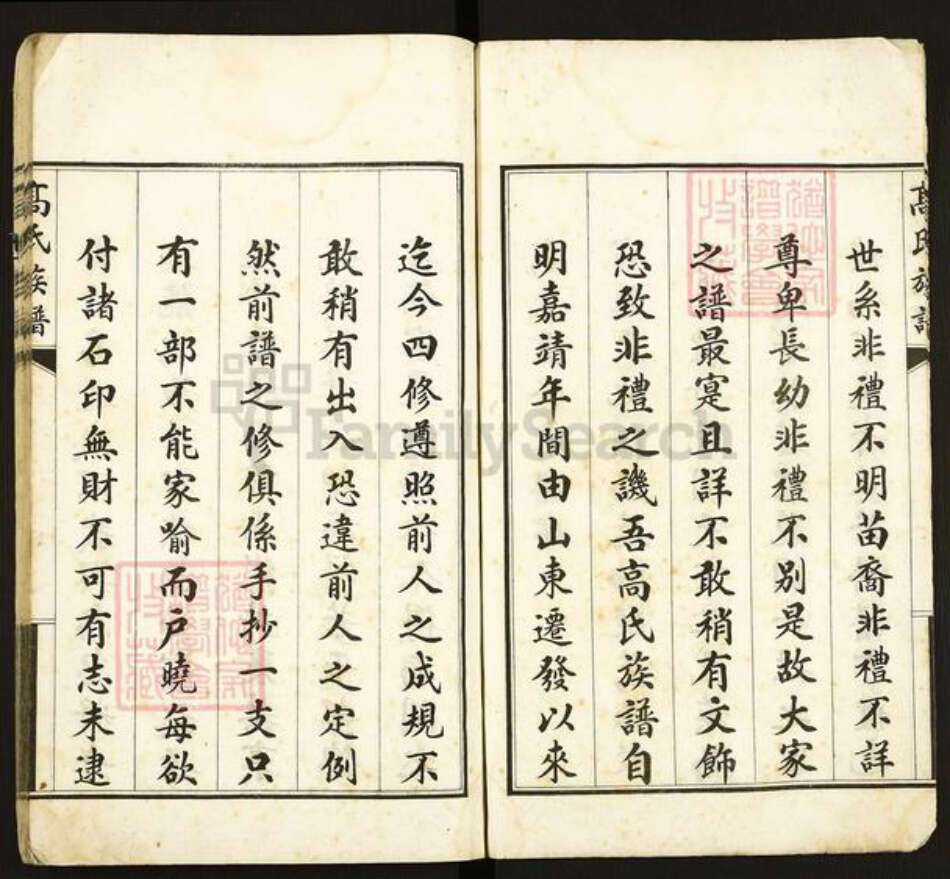 高氏族譜
世系非禮不明苗裔非禮不詳
尊卑長幼非禮不別是故大家
之譜最寔且詳不敢稍有文飾
恐致非禮之譏吾高氏族譜自
明嘉靖年間由山東遷發以來
迄今四修遵照前人之成規不
敢稍有出入恐違前人之定例
然前譜之修俱係手抄一支只
有一部不能家喻而戶曉每欲
付諸石印無財不可有志未逮
高氏族譜
FamilySearch